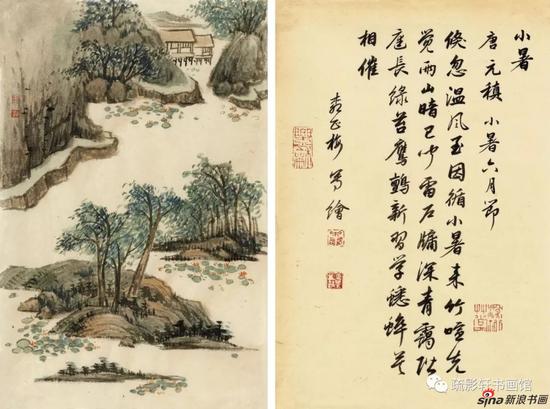 小暑
唐 元稹 小暑六月节
倏忽温风至因循小暑来竹喧先
觉雨山暗已闻雷户牖深青靄阶
庭長綠苔鷹鸇新習学蟋蟀莫
相催
寫繪
疏影轩书画馆
sina 新浪书画